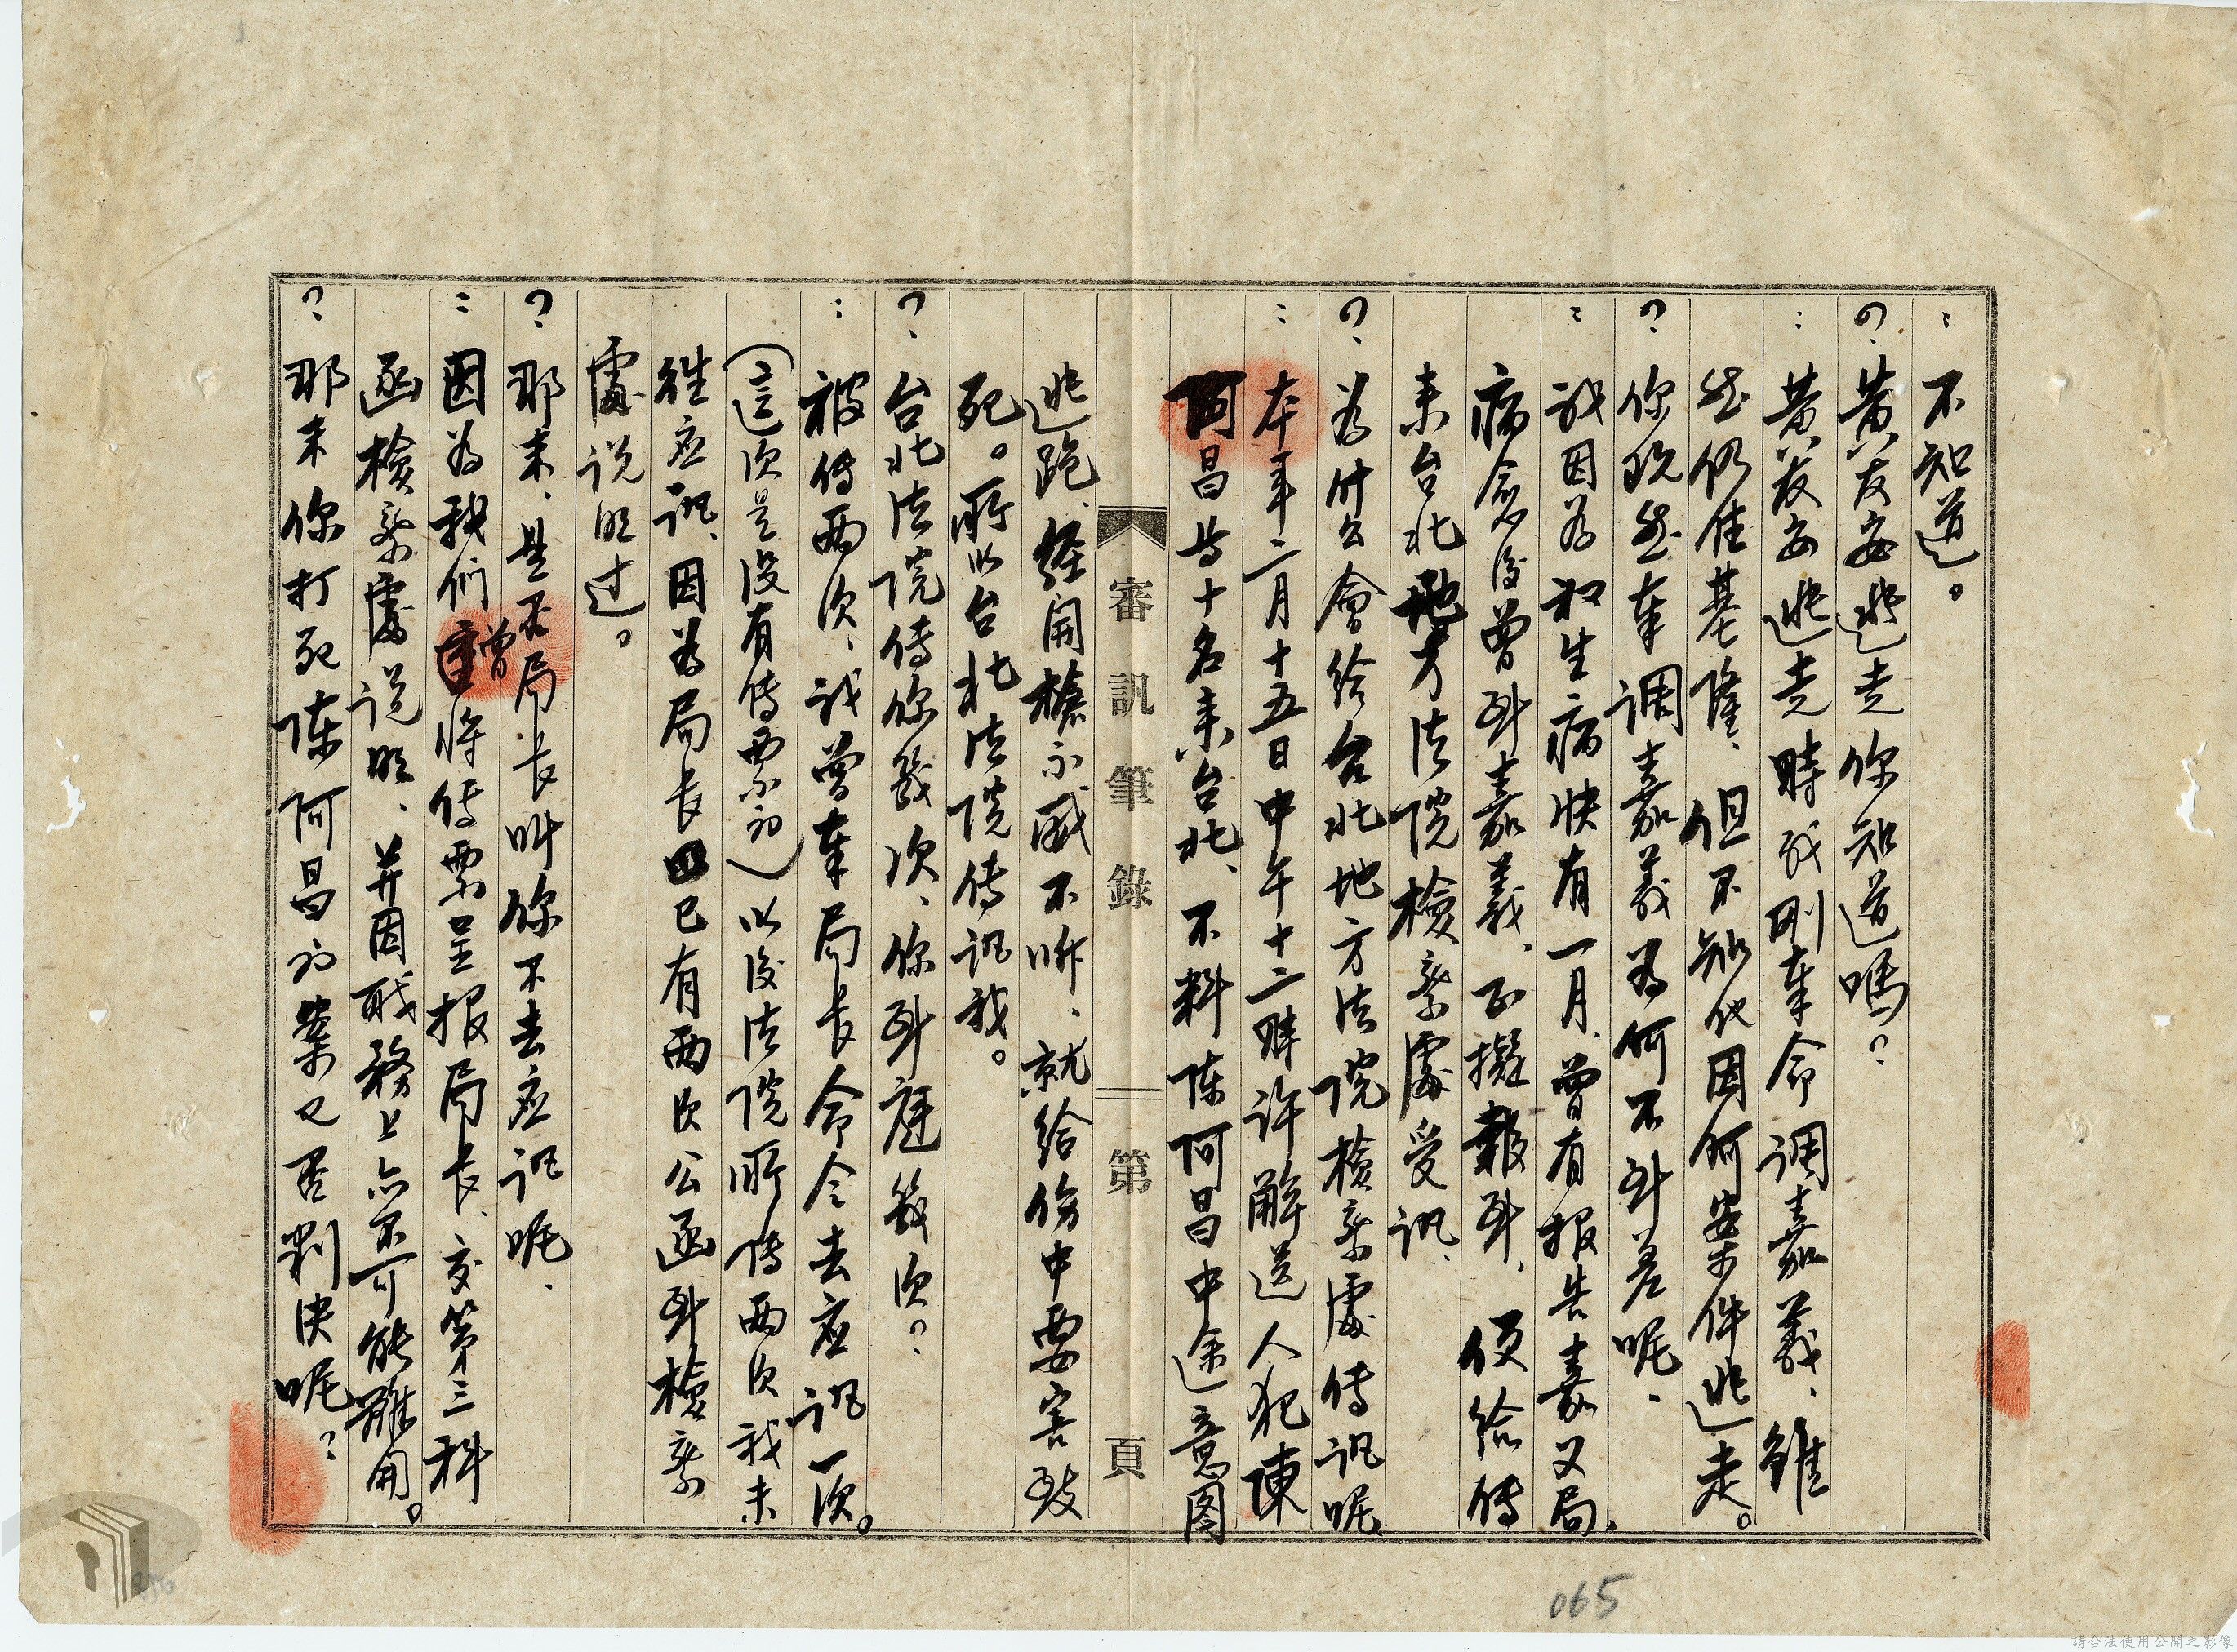 : 不知道。
? 黄友安逃走你知道嗎?
: 黄友安逃走時我剛奉命調嘉義、雖
然仍住基隆、但不知他因何案件逃走。
? 你既然奉調嘉義為何不到差呢、
: 我因為初生病快有一月、曾有报告嘉义局、
病愈後曾到嘉義、正擬報到、便給傳
来台北地方法院檢察處受訊、
? 為什么會給台北地方法院檢察處傳訊呢
: 本年二月十五日中午十二時許解送人犯陳
阿昌等十名来台北、不料陈阿昌中途意图
審訊筆錄 第 頁
逃跑、經開槍示威不听、就給伤中要害致
死。所以台北法院傳訊我。
? 台北法院傳你幾次、你到庭幾次?
: 被傳兩次、我曾奉局長命令去应訊一次。
(這次是没有傳票的)以後法院所傳兩次我未
往应訊、因為局長已有兩次公函到檢察
處说明过。
? 那末、是否局长叫你不去应訊呢、
: 因為我们曾將傳票呈报局长、交第三科
函檢察處说明、并因職務上亦不可能離開。
? 那末你打死陈阿昌的案已否判决呢?
065
請合法使用公開之影像